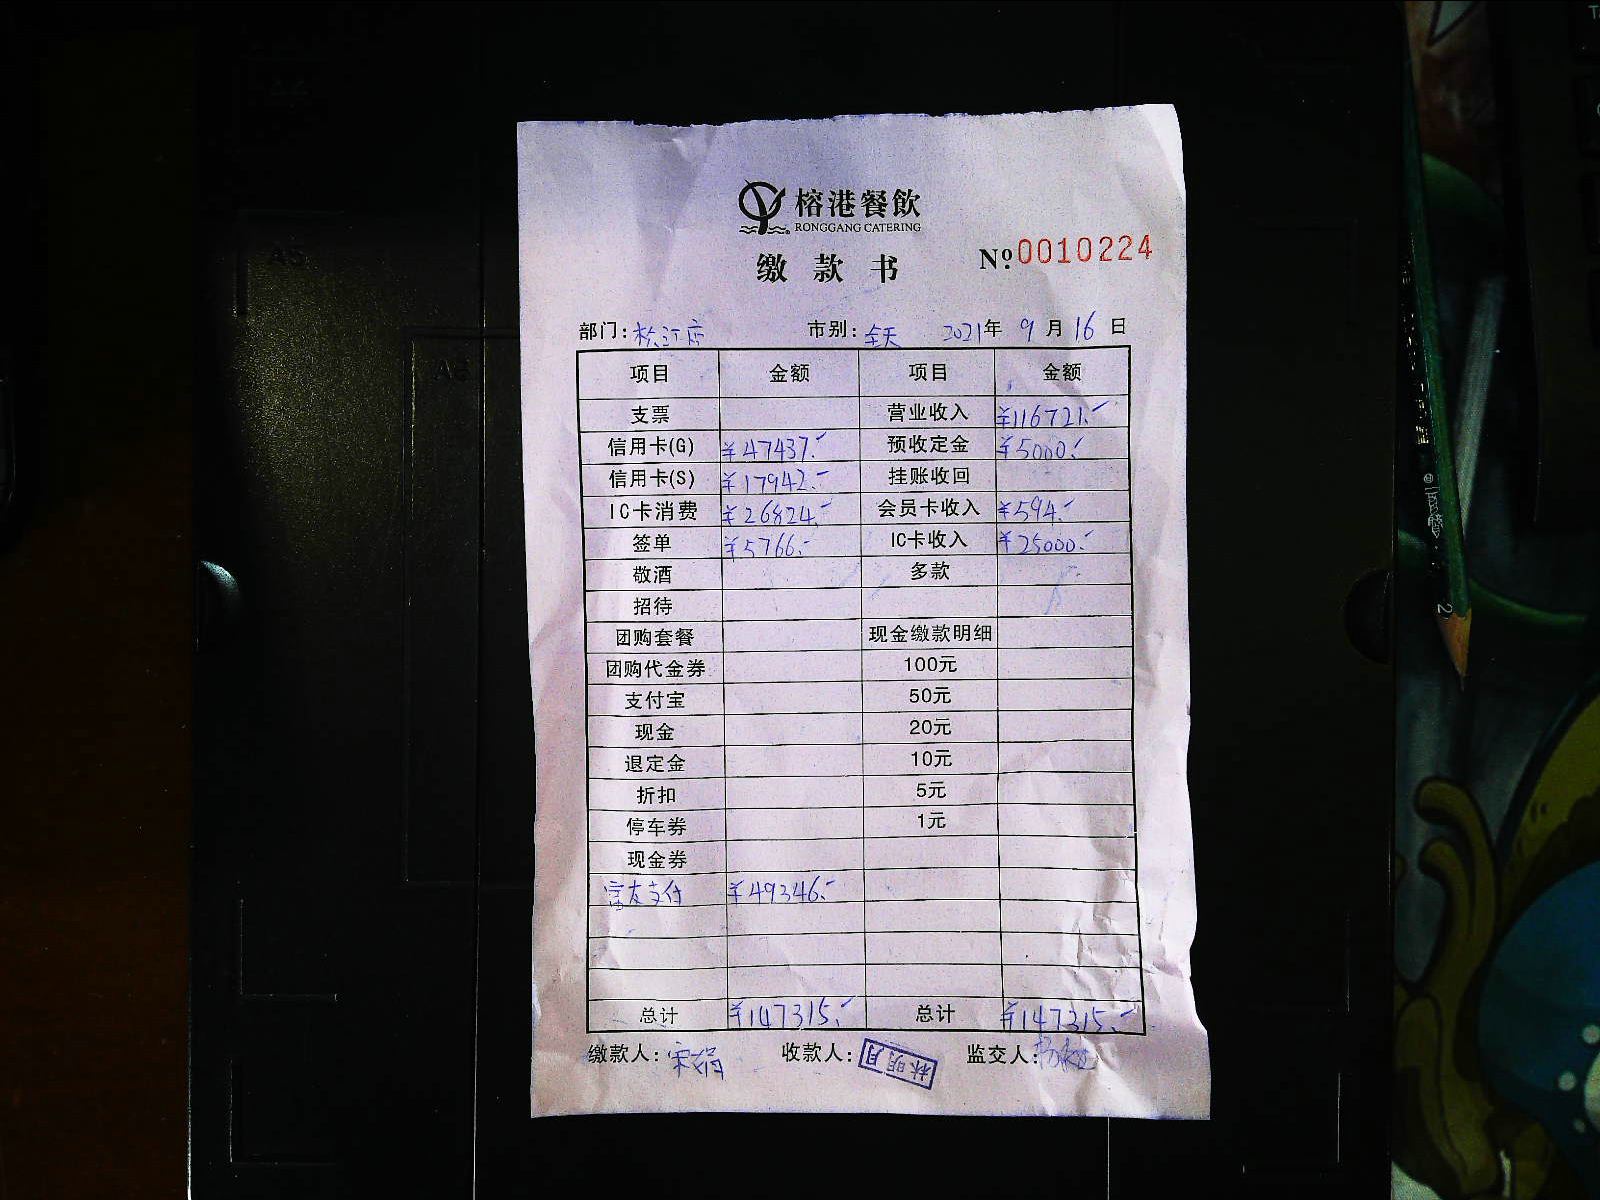 榕港餐飲
RONGGANG CATERING
缴款书 Nº 0010224
部门: 松江店 市别: 全天 2021年 9月16日
项目 金额 项目 金额
支票 营业收入 ¥116721.-
信用卡(G) ¥47437.- 预收定金 ¥5000.-
信用卡(S) ¥17942.- 挂账收回
IC卡消费 ¥26824.- 会员卡收入 ¥594.-
签单 ¥5766.- IC卡收入 ¥25000.-
敬酒 多款
招待
团购套餐 现金缴款明细
团购代金券 100元
支付宝 50元
现金 20元
退定金 10元
折扣 5元
停车券 1元
现金券
富友支付 ¥49346.-
总计 ¥147315.- 总计 ¥147315.-
缴款人: 宋娟 收款人: 林明月 监交人:
A5
A5
2